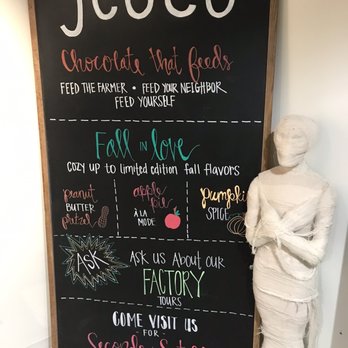 jcoco
Chocolate that feeds
FEED THE FARMER • FEED YOUR NEIGHBOR
FEED YOURSELF
Fall IN love
COZY UP to LIMITED EDITION fall flavors
peanut
BUTTER
pretzel
apple
pie
À LA
MODE
pumpkin
SPICE
ASK
ASK US ABOUT OUR
FACTORY
TOURS
COME VISIT US
FOR